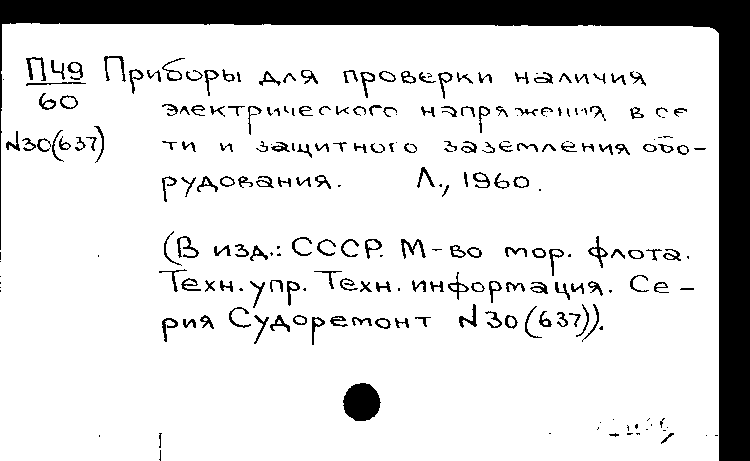 П49 Приборы для проверки наличия
60 электрического напряжения в се
№30(637) ти и защитного заземления обо-
рудования. Л., 1960.
(В изд.: СССР. М-во мор. флота.
Техн. упр. Техн. информация. Се-
рия Судоремонт №30(637)).